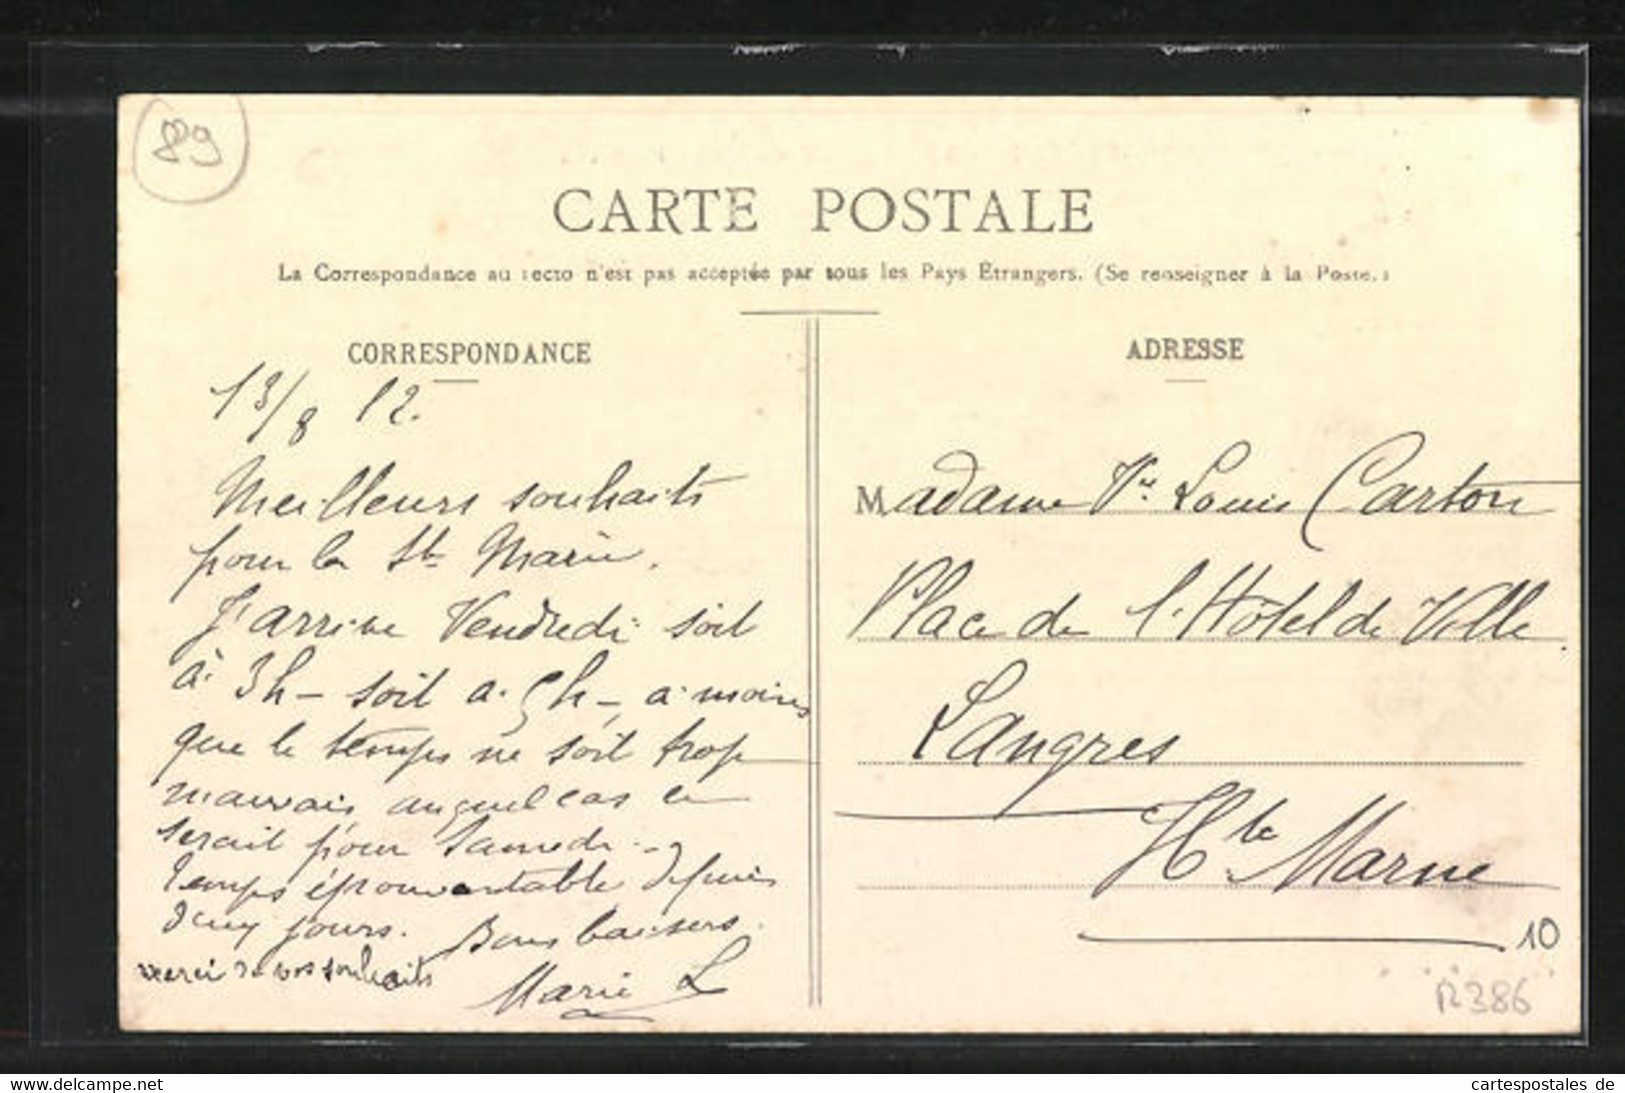 89
CARTE POSTALE
La Correspondance au recto n'est pas acceptée par tous les Pays Étrangers. (Se renseigner à la Poste.)
CORRESPONDANCE
13/8 12.
Meilleurs souhaits
pour la Ste Marie.
J'arrive Vendredi soit
à 3h - soit à 5h - à moins
que le temps ne soit trop
mauvais auquel cas ce
serait pour Samedi -
Temps épouvantable depuis
deux jours. Bons baisers.
Marie L
merci de vos souhaits
ADRESSE
Madame Vve Louis Carton
Place de l'Hôtel de Ville
Langres
Hte Marne
10
R386
www.delcampe.net
cartespostales de